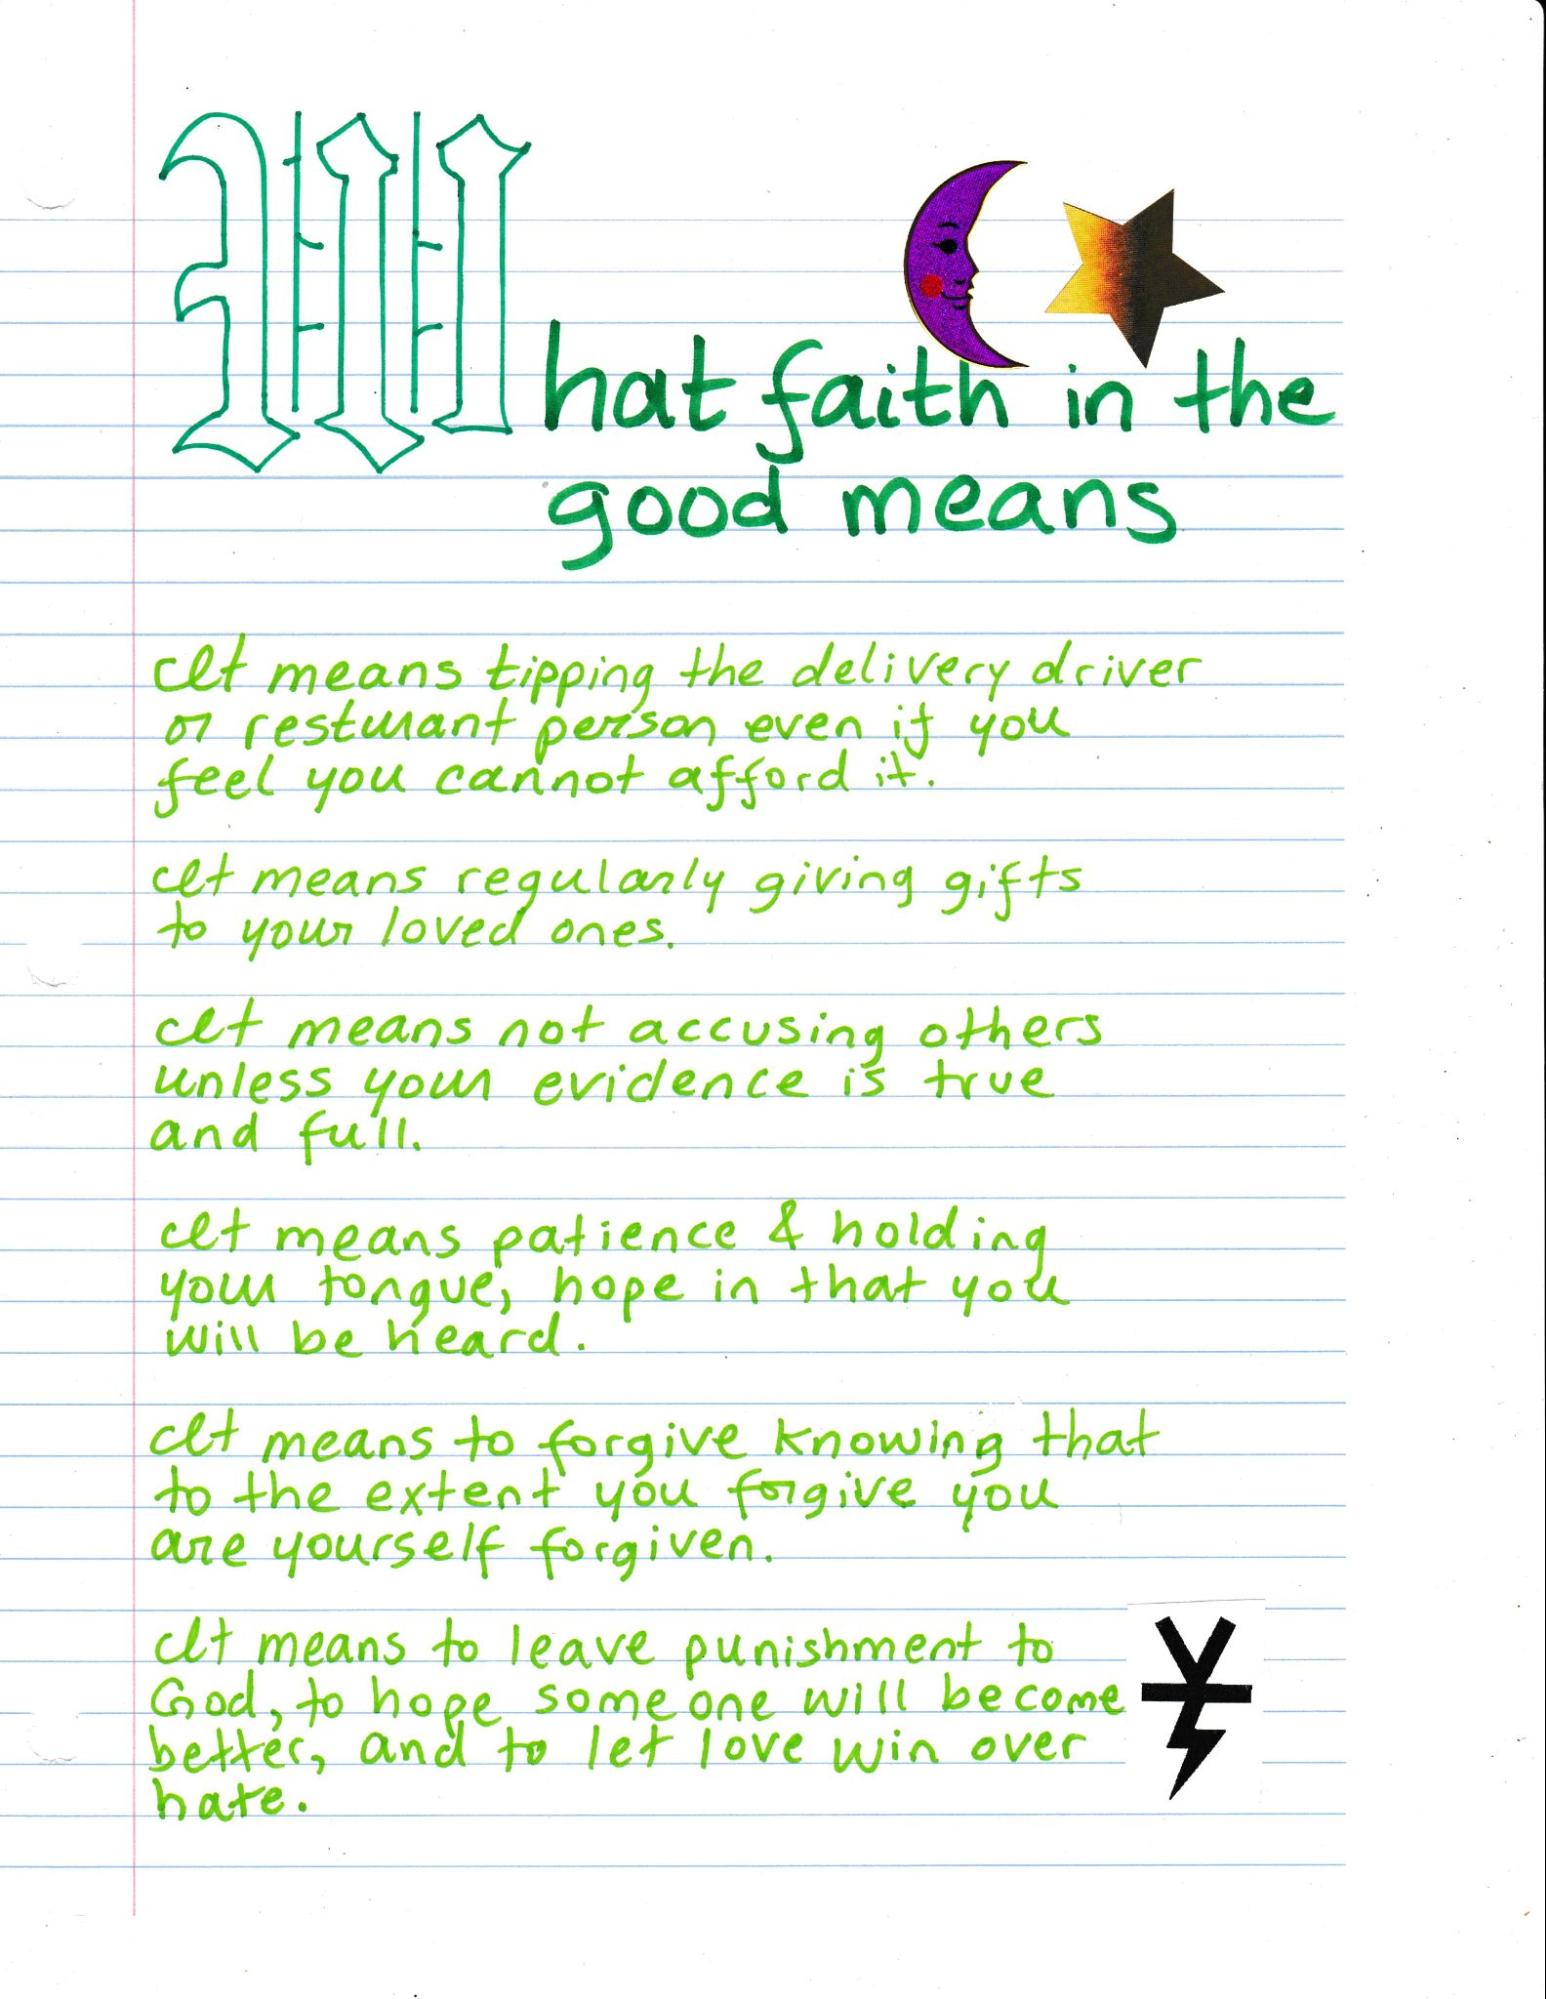 What faith in the
good means
It means tipping the delivery driver
or resturant person even if you
feel you cannot afford it.
It means regularly giving gifts
to your loved ones.
It means not accusing others
unless your evidence is true
and full.
It means patience & holding
your tongue, hope in that you
will be heard.
It means to forgive knowing that
to the extent you forgive you
are yourself forgiven.
It means to leave punishment to
God, to hope someone will become
better, and to let love win over
hate.